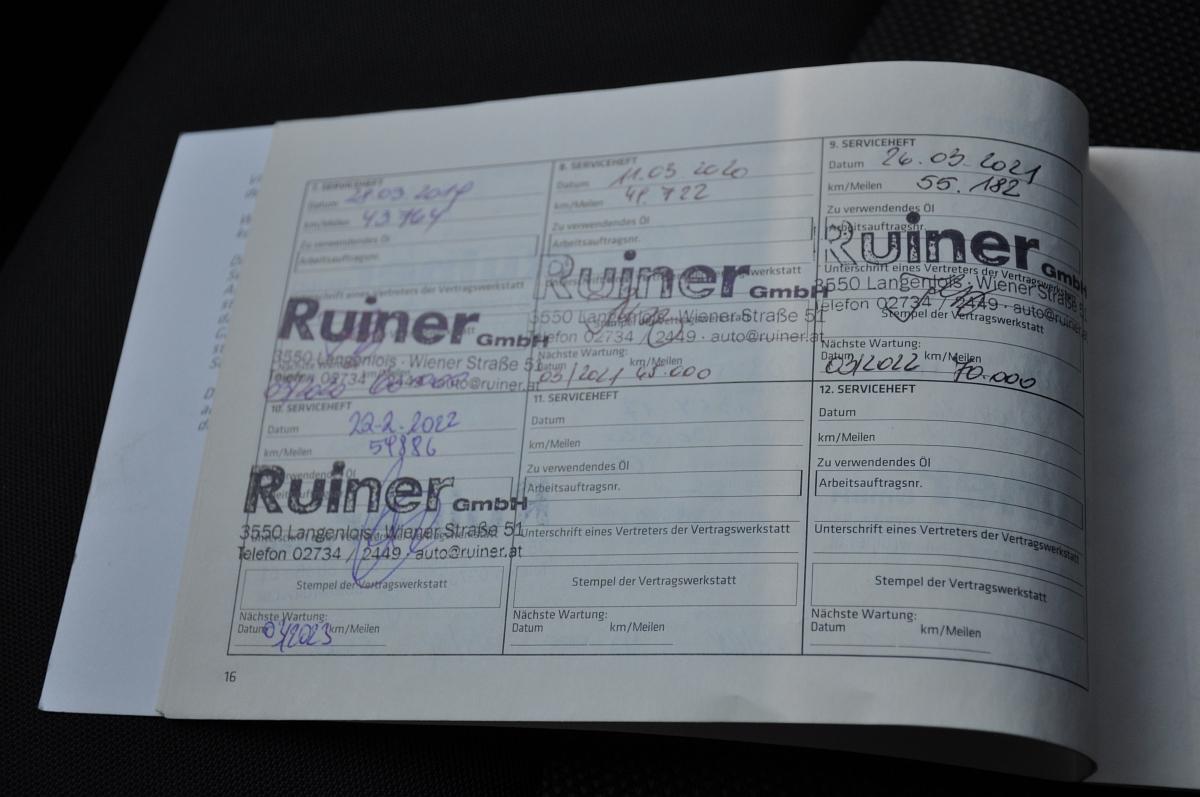 7. SERVICEHEFT
Datum 28 03 2019
km/Meilen 43 764
Zu verwendendes Öl
Arbeitsauftragsnr.
Unterschrift eines Vertreters der Vertragswerkstatt
Ruiner GmbH
3550 Langenlois · Wiener Straße 51
Telefon 02734 / 2449 · auto@ruiner.at
8. SERVICEHEFT
Datum 11.03 2020
km/Meilen
Zu verwendendes Öl
Arbeitsauftragsnr.
Ruiner GmbH
3550 Langenlois · Wiener Straße 51
Telefon 02734 / 2449 · auto@ruiner.at
Nächste Wartung:
Datum 03/2021 km/Meilen
9. SERVICEHEFT
Datum 26.03.2021
km/Meilen 55.182
Zu verwendendes Öl
Arbeitsauftragsnr.
Ruiner GmbH
Unterschrift eines Vertreters der Vertragswerkstatt
3550 Langenlois · Wiener Straße 51
Telefon 02734 / 2449 · auto@ruiner
Stempel der Vertragswerkstatt
Nächste Wartung:
Datum 03/2022 km/Meilen 70.000
10. SERVICEHEFT
Datum 22.2.2022
km/Meilen 59886
Ruiner GmbH
3550 Langenlois · Wiener Straße 51
Telefon 02734 / 2449 · auto@ruiner.at
Stempel der Vertragswerkstatt
Nächste Wartung:
Datum km/Meilen
11. SERVICEHEFT
Datum
km/Meilen
Zu verwendendes Öl
Arbeitsauftragsnr.
Unterschrift eines Vertreters der Vertragswerkstatt
Stempel der Vertragswerkstatt
Nächste Wartung:
Datum km/Meilen
12. SERVICEHEFT
Datum
km/Meilen
Zu verwendendes Öl
Arbeitsauftragsnr.
Unterschrift eines Vertreters der Vertragswerkstatt
Stempel der Vertragswerkstatt
Nächste Wartung:
Datum km/Meilen
16